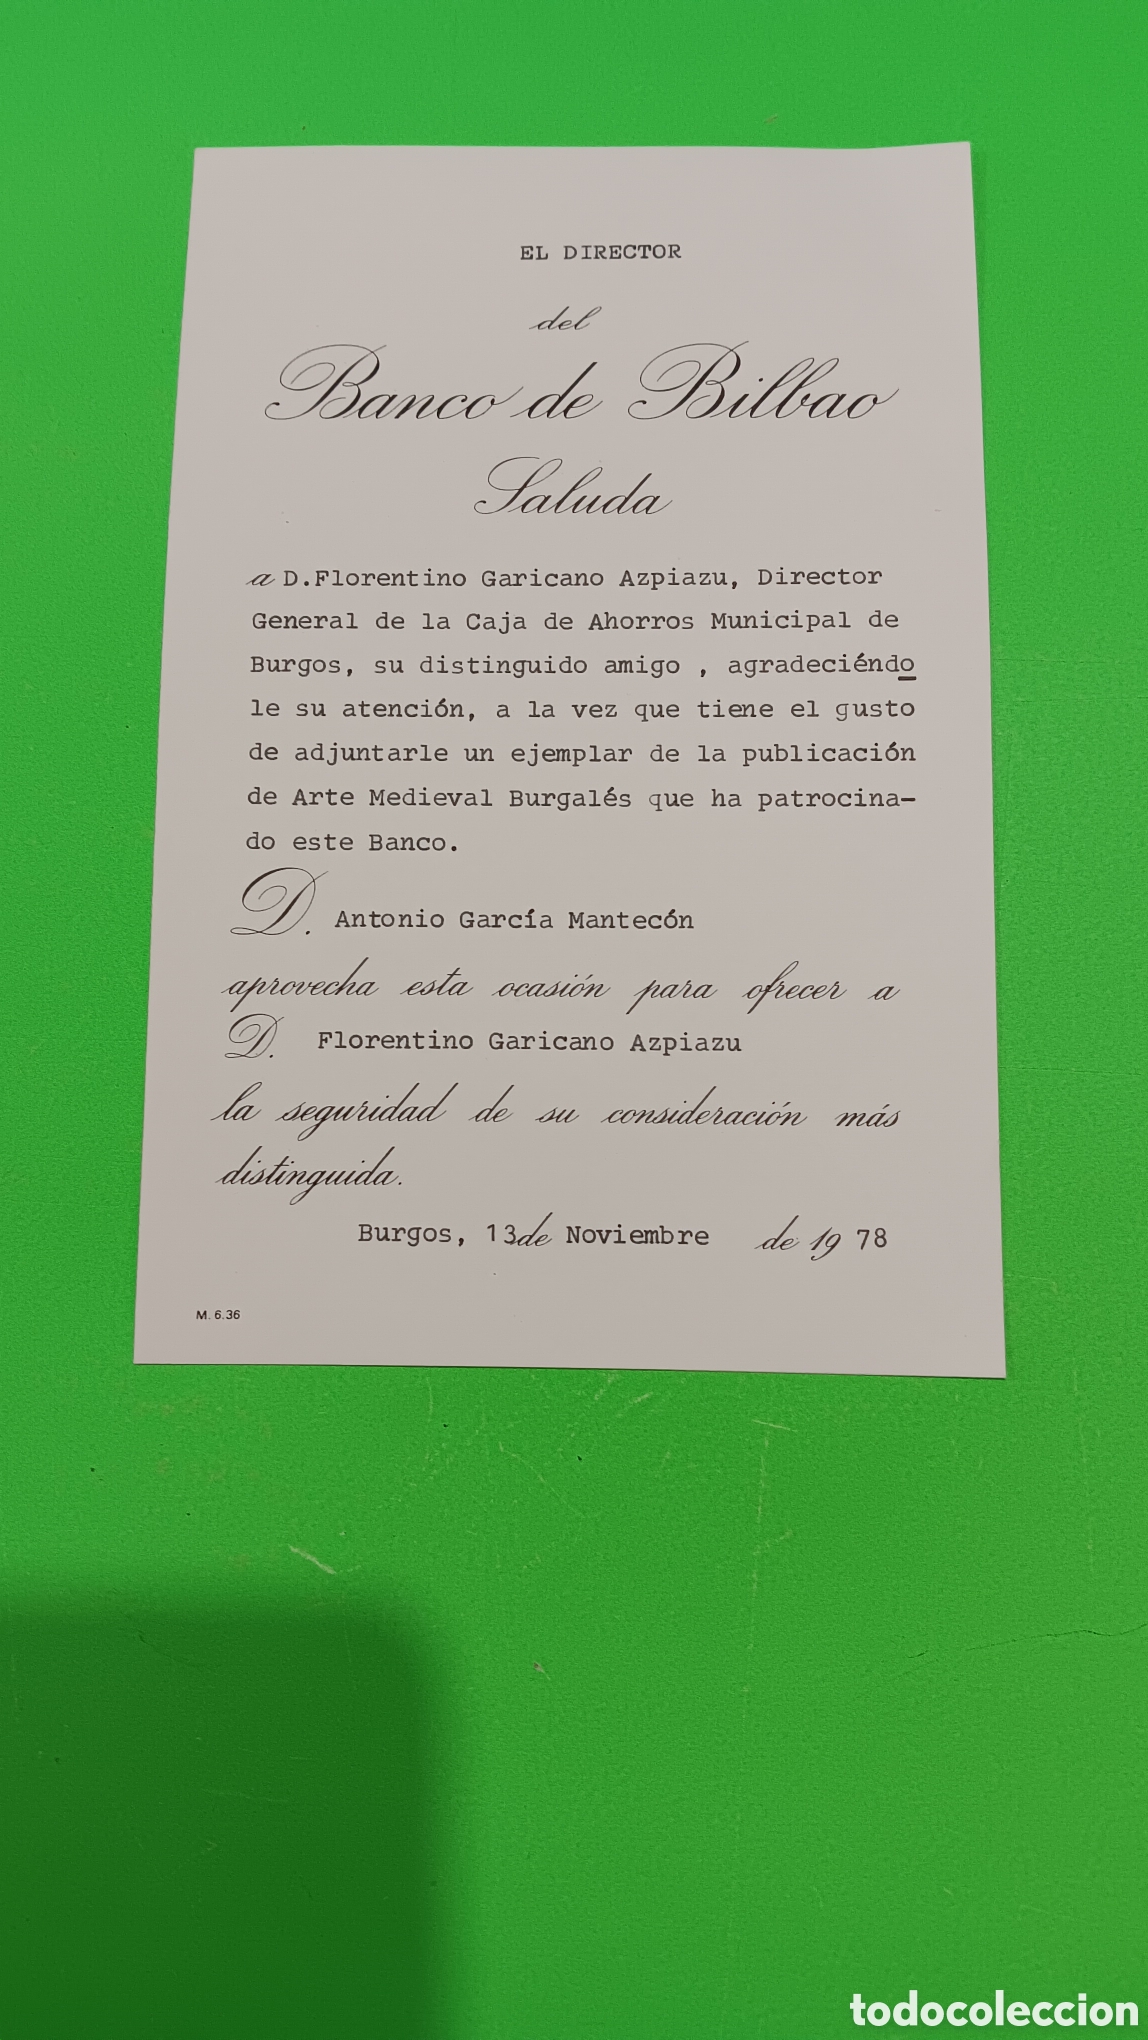 EL DIRECTOR
del
Banco de Bilbao
Saluda
a D.Florentino Garicano Azpiazu, Director
General de la Caja de Ahorros Municipal de
Burgos, su distinguido amigo , agradeciéndo
le su atención, a la vez que tiene el gusto
de adjuntarle un ejemplar de la publicación
de Arte Medieval Burgalés que ha patrocina-
do este Banco.
D. Antonio García Mantecón
aprovecha esta ocasión para ofrecer a
D. Florentino Garicano Azpiazu
la seguridad de su consideración más
distinguida.
Burgos, 13 de Noviembre de 19 78
M. 6.36
todocoleccion